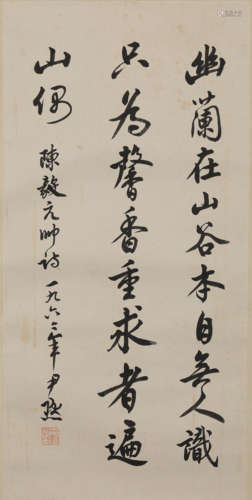 幽蘭在山谷本自無人識
只為馨香重求者遍
山偶
陳毅元帥詩 一九六二年 尹默